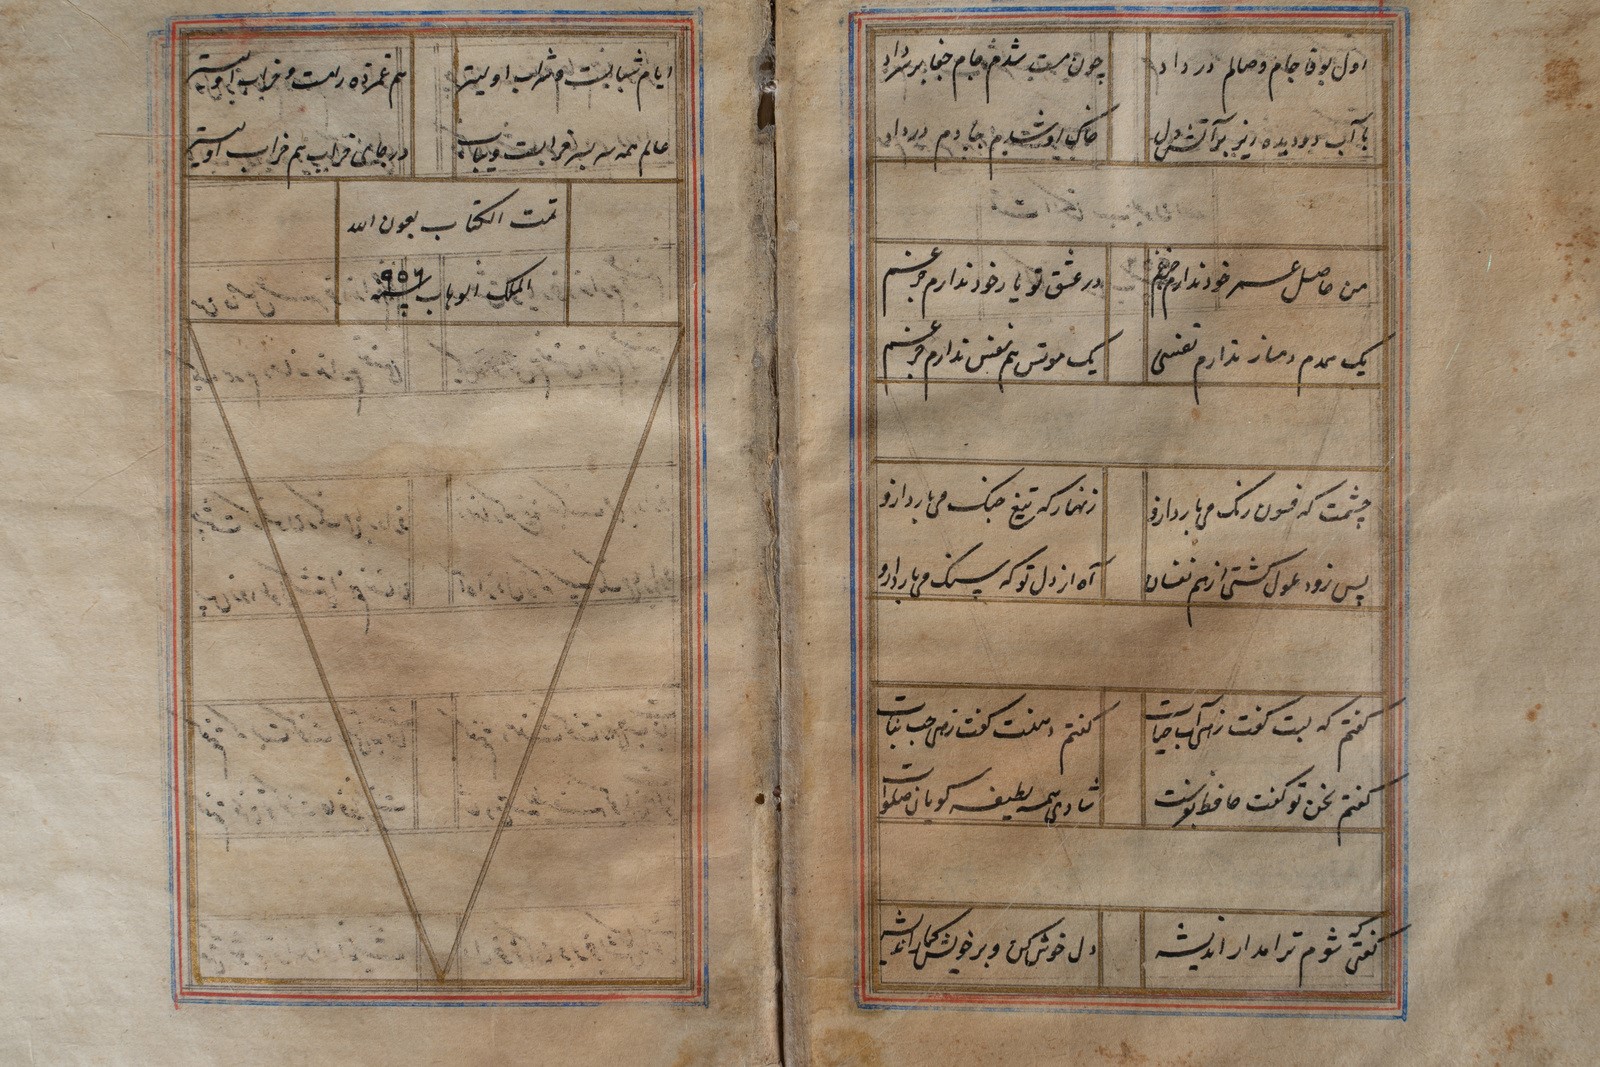 اول بوفا جام وصالم در داد
چون مست شدم جام جفا بر سر داد
با آب دو دیده ریز بر آتش دل
خاک ره او شدم بباد م در داد
من حاصل عمر خود ندارم جز غم
در عشق تو یار خود ندارم جز غم
یک همدم دمساز ندارم نفسی
یک مونس هم نفس ندارم جز غم
چشمت که فسون رنک می بارد ازو
زنهار که تیغ جنک می بارد ازو
بس زود ملول کشتی از هم نفسان
آه از دل تو که سنک می بارد ازو
کفتم که لبت کفت زهی آب حیات
کفتم دهنت کفت زهی حب نبات
کفتم سخن تو کفت حافظ
شادی همه لطیفه کویان صلوات
کفتی که شوم ترا مدار اندیشه
دل خوش کن و بر خویش کمار اندیشه
ایام شبابست و شراب اولیتر
هم غمزده مست و خراب اولیتر
عالم همه سر بسر خرابست و یباب
در جای خراب هم خراب اولیتر
تمت الکتاب بعون الله
الملک الوهاب سنه ۹۵۶